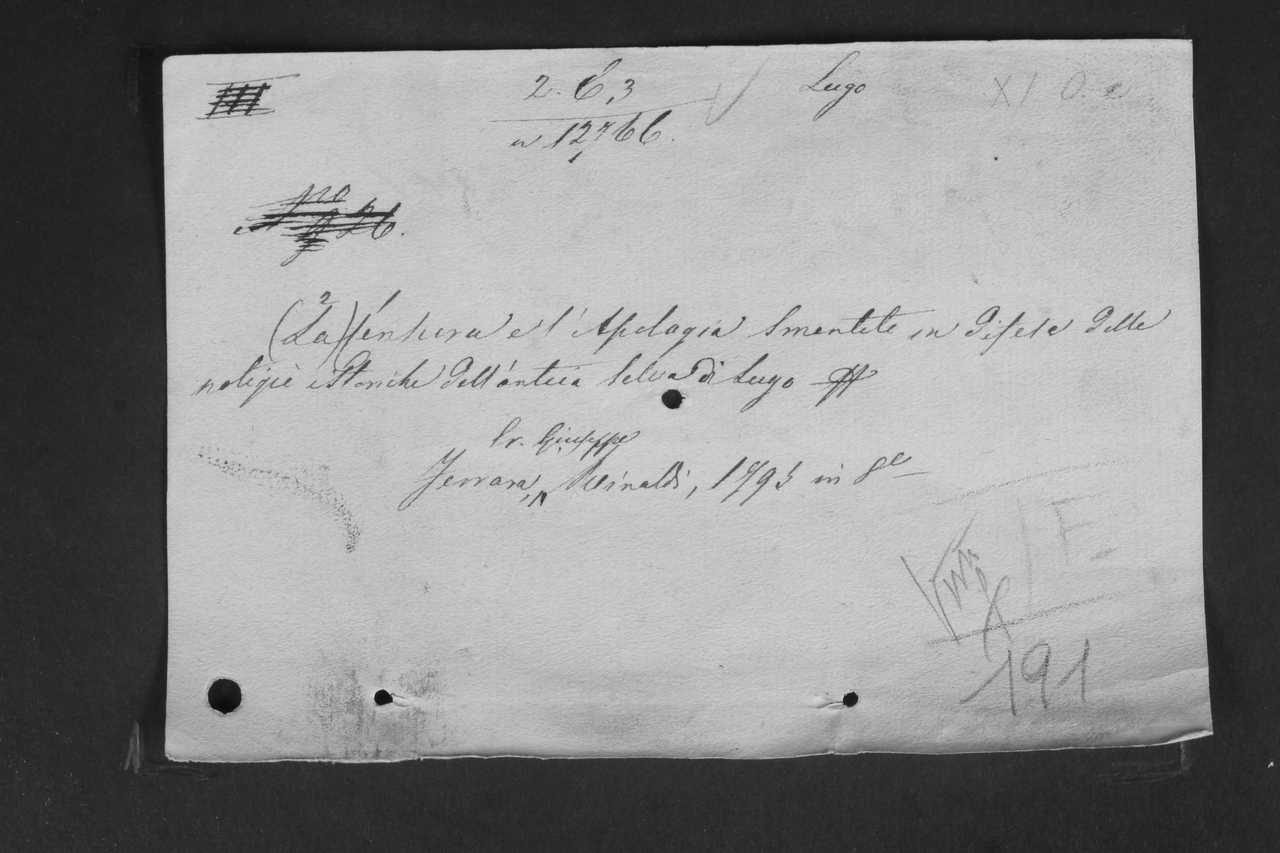 2. C, 3
Lugo
XI O. e
n 12766.
(La) Censura e l'Apologia Smentite in difesa delle
notizie istoriche dell'antica Selva di Lugo
Giuseppe
Ferrara, Rinaldi, 1793 in 8º
F
191